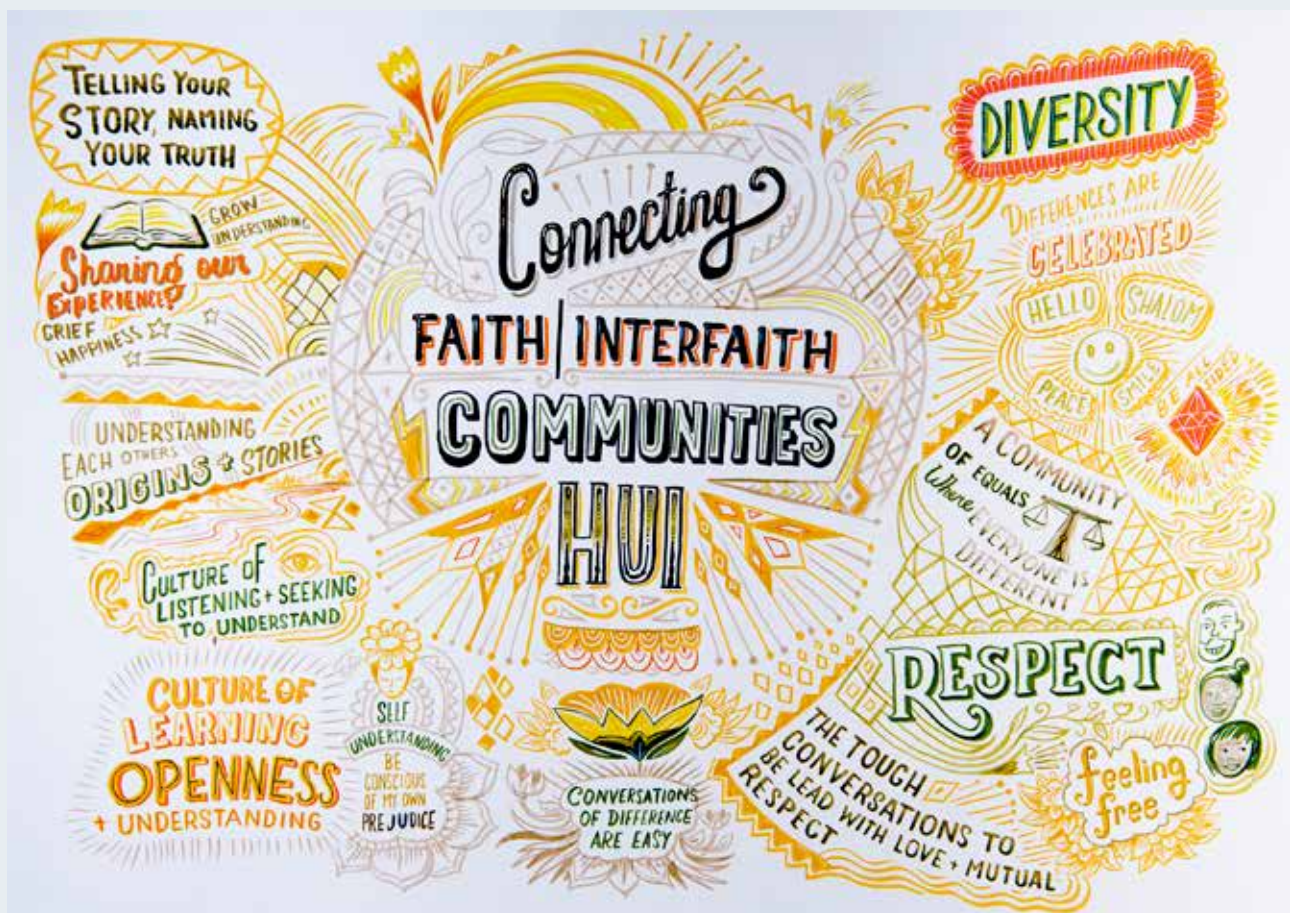 Connecting
FAITH | INTERFAITH
COMMUNITIES
HUI
TELLING YOUR
STORY, NAMING
YOUR TRUTH
GROW
UNDERSTANDING
Sharing our
EXPERIENCES
GRIEF
HAPPINESS
UNDERSTANDING
EACH OTHERS
ORIGINS + STORIES
CULTURE OF
LISTENING + SEEKING
TO UNDERSTAND
CULTURE OF
LEARNING
OPENNESS
+ UNDERSTANDING
SELF
UNDERSTANDING
BE
CONSCIOUS
OF MY OWN
PREJUDICE
CONVERSATIONS
OF DIFFERENCE
ARE EASY
DIVERSITY
DIFFERENCES ARE
CELEBRATED
HELLO
SHALOM
PEACE
SMILE
ALL
A COMMUNITY
OF EQUALS
Where EVERYONE IS
DIFFERENT
RESPECT
THE TOUGH
CONVERSATIONS TO
BE LEAD WITH LOVE + MUTUAL
RESPECT
feeling
free